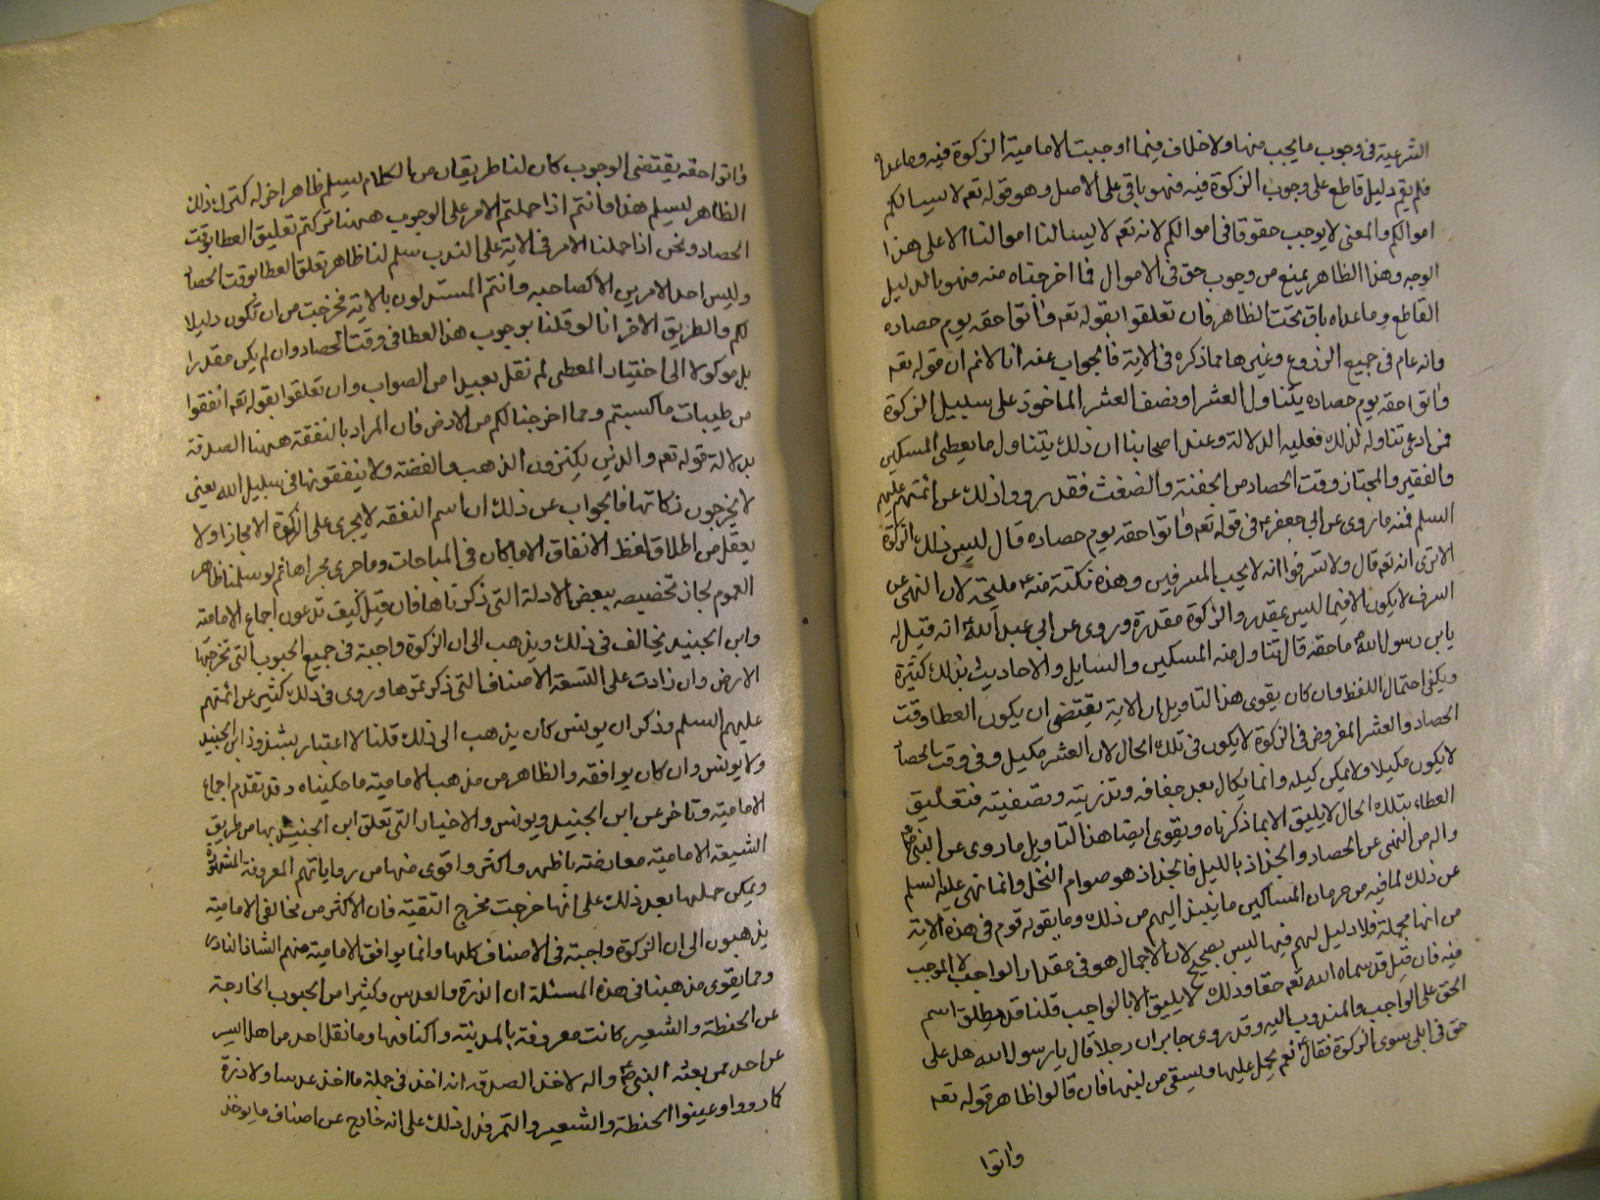 الشرعية فى وجوب ما يجب منها ولا خلاف فيما اوجبت الامامية الزكوة فيه وما عداه
فلم يقم دليل قاطع على وجوب الزكوة فيه فهو باقى على الاصل وهو قوله تعه لا يسالكم
اموالكم والمعنى لا يوجب حقوقا فى اموالكم لانه تعه لا يسالنا اموالنا الا على هذا
الوجه وهذا الظاهر يمنع من وجوب حق فى الاموال فما اخرجناه منه فهو بالدليل
القاطع وما عداه باق تحت الظاهر فان تعلقوا بقوله تعه واتوا حقه يوم حصاده
وانه عام فى جميع الزروع وغيرها مما ذكره فى الاية فالجواب عنه انا لانم ان قوله تعه
واتوا حقه يوم حصاده يتناول العشر او نصف العشر الماخوذ على سبيل الزكوة
فمن ادعى تناوله لذلك فعليه الدلالة وعند اصحابنا ان ذلك يتناول ما يعطى المسكين
والفقير والمجتاز وقت الحصاد من الحفنة والضغث فقد رووا ذلك عن ائمتهم عليهم
السلم فمنه ما روى عن ابى جعفر ع فى قوله تعه واتوا حقه يوم حصاده قال ليس ذلك الزكوة
الا ترى انه تعه قال ولا تسرفوا انه لا يحب المسرفين وهذه نكتة منه ع مليحة لان النهى عن
السرف لا يكون الا فيما ليس بمقدر والزكوة مقدرة وروى عن ابى عبد الله ع انه قيل له
يابن رسول الله ما حقه قال تناول منه المسكين والسايل والاحاديث بذلك كثيرة
ويكفى احتمال اللفظ وان كان يقوى هذا التاويل ان الاية يقتضى ان يكون العطا وقت
الحصاد والعشر المفروض فى الزكوة لا يكون فى تلك الحال لان العشر مكيل وفى وقت الحصاد
لا يكون مكيلا ولا يمكن كيله وانما يكال بعد جفافه وتذريته وتصفيته فتعليق
العطاء بتلك الحال لا يليق الا بما ذكرناه ويقوى ايضا هذا التاويل ما روى عن النبى ص
واله من النهى عن الحصاد والجذاذ بالليل فالجذاذ هو صرام النخل وانما نهى عليه السلم
عن ذلك لما فيه من حرمان المساكين ما ينبذ اليهم من ذلك وما يقوله قوم فى هذه الاية
من انها مجملة فلا دليل لهم فيها ليس بصحيح لان الاجمال هو فى مقدار الواجب لا الموجب
فيه فان قيل قد سماه الله تعه حقا وذلك لا يليق الا بالواجب قلنا قد يطلق اسم
الحق على الواجب والمندوب اليه وقد روى جابر ان رجلا قال يا رسول الله هل على
حق فى ابلى سوى الزكوة فقال ع نعم يحمل عليها ويسقى من لبنها فان قالوا ظاهر قوله تعه
واتوا
واتوا حقه يقتضى الوجوب كان لنا طريقان من الكلام يسلم ظاهر اخر له كترك ذلك
الظاهر ليسلم هذا فانتم اذا حملتم الامر على الوجوب ههنا تركتم تعليق العطا بوقت
الحصاد ونحن اذا حملنا الامر فى الاية على الندب سلم لنا ظاهر تعلق العطا بوقت الحصاد
وليس احد الامرين الا كصاحبه وانتم المستدلون بالاية فخرجت من ان تكون دليلا
لكم والطريق الاخر انا لو قلنا بوجوب هذا العطا فى وقت الحصاد وان لم يكن مقدرا
بل موكولا الى اختيار المعطى لم نقل بعيدا من الصواب وان تعلقوا بقوله تعه انفقوا
من طيبات ما كسبتم ومما اخرجنا لكم من الارض فان المراد بالنفقة ههنا الصدقة
بدلالة قوله تعه والذين يكنزون الذهب والفضة ولا ينفقونها فى سبيل الله يعنى
لا يخرجون زكاتها فالجواب عن ذلك ان اسم النفقة لا يجرى على الزكوة الا مجازا ولا
يعقل من اطلاق لفظ الانفاق الا ما كان فى المباحات وما جرى مجراها ثم لو سلمنا ظاهر
العموم لجاز تخصيصه ببعض الادلة التى ذكرناها فان قيل كيف تدعون اجماع الامامية
وابن الجنيد يخالف فى ذلك ويذهب الى ان الزكوة واجبة فى جميع الحبوب التى تخرجها
الارض وان زادت على التسعة الاصناف التى ذكرتموها وروى فى ذلك كثير عن ائمتهم
عليهم السلم وذكر ان يونس كان يذهب الى ذلك قلنا لا اعتبار بشذوذ ابن الجنيد
ولا يونس وان كان يوافقه والظاهر من مذهب الامامية ما حكيناه وقد تقدم اجماع
الامامية وتاخر عن ابن الجنيد ويونس والاخبار التى تعلق ابن الجنيد بها من طريق
الشيعة الامامية معارضة باظهر واكثر واقوى منها من رواياتهم المعروفة المشهورة
ويمكن حملها بعد ذلك على انها خرجت مخرج التقية فان الاكثر من مخالفى الامامية
يذهبون الى ان الزكوة واجبة فى الاصناف كلها وانما يوافق الامامية منهم الشاذ النادر
ومما يقوى مذهبنا فى هذه المسئلة ان الذرة والعدس وكثيرا من الحبوب الخارجة
عن الحنطة والشعير كانت معروفة بالمدينة واكنافها وما نقل احد من اهل السير
عن احد ممن بعثه النبى ص واله لاخذ الصدقة انه اخذ فى جملة ما اخذ عدسا ولا ذرة
كما رووا وعينوا الحنطة والشعير والتمر فدل ذلك على انه خارج عن اصناف ما يوخذ